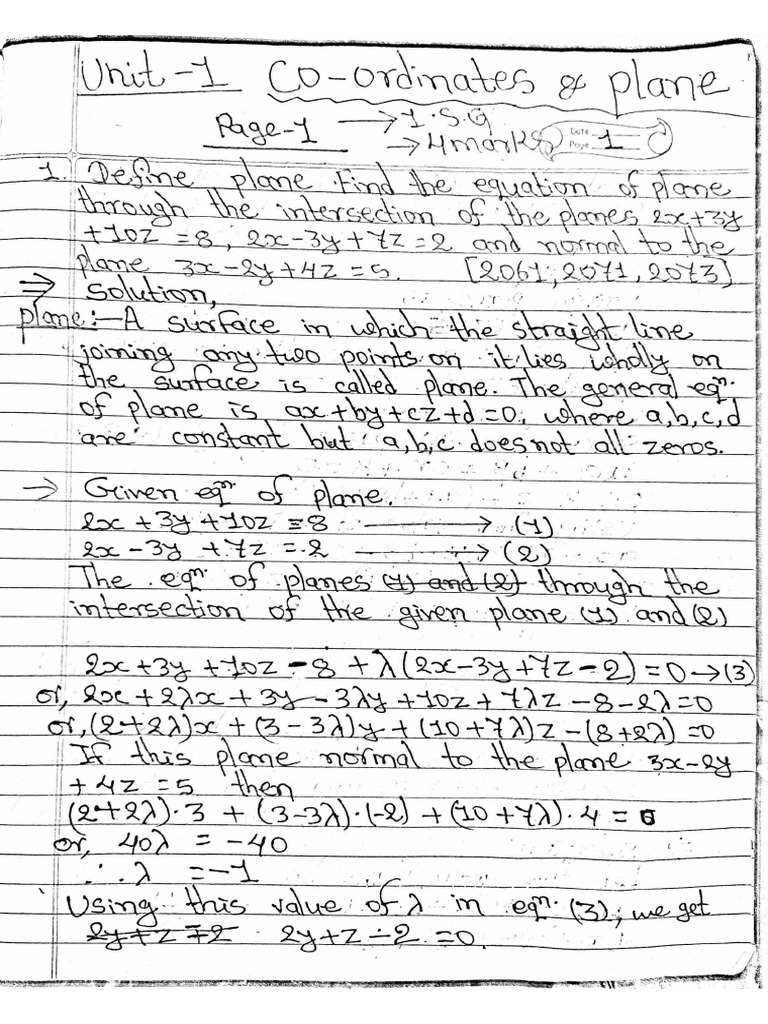 Unit-1 Co-ordinates & plane
Page-1 → 1.S.Q
→ 4 marks Date Page 1
1. Define plane. Find the equation of plane
through the intersection of the planes 2x+3y
+10z =8, 2x-3y+7z=2 and normal to the
plane 3x-2y+4z=5. [2061,2071,2073]
⇒ Solution,
plane:- A surface in which the straight line
joining any two points on it lies wholly on
the surface is called plane. The general eqn.
of plane is ax+by+cz+d=0, where a,b,c,d
are constant but a,b,c does not all zeros.
→ Given eqn of plane.
2x+3y+10z =8 → (1)
2x-3y+7z =2 → (2)
The eqn. of planes (1) and (2) through the
intersection of the given plane (1) and (2)
2x+3y+10z-8+λ(2x-3y+7z-2)=0→(3)
or, 2x+2λx+3y-3λy+10z+7λz-8-2λ=0
or, (2+2λ)x+(3-3λ)y+(10+7λ)z-(8+2λ)=0
If this plane normal to the plane 3x-2y
+4z=5 then
(2+2λ)·3+(3-3λ)·(-2)+(10+7λ)·4=0
or, 40λ = -40
∴ λ =-1
Using this value of λ in eqn. (3), we get
2y+z=2 2y+z-2=0.